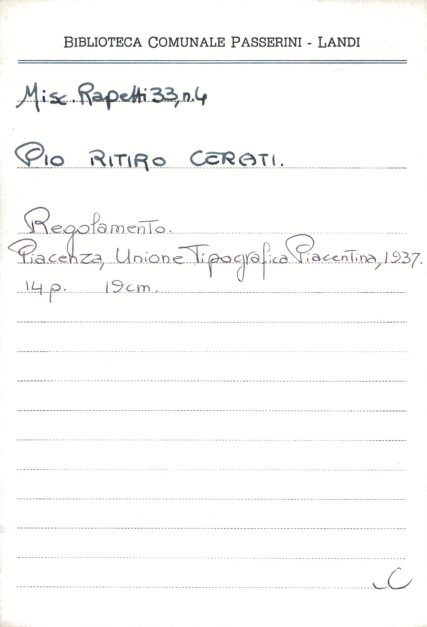 BIBLIOTECA COMUNALE PASSERINI - LANDI
Misc. Rapetti 33, n. 4
PIO RITIRO CERATI.
Regolamento.
Piacenza, Unione Tipografica Piacentina, 1937.
14 p. 19 cm.
C